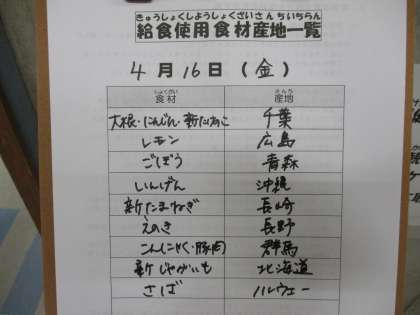 きゅうしょくしようしょくざいさんちいちらん
給食使用食材産地一覧
4月16日(金)
しょくざい さんち
食材 産地
大根・にんじん・新たけのこ 千葉
レモン 広島
ごぼう 青森
いんげん 沖縄
新たまねぎ 長崎
えのき 長野
こんにゃく・豚肉 群馬
新じゃがいも 北海道
さば ノルウェー